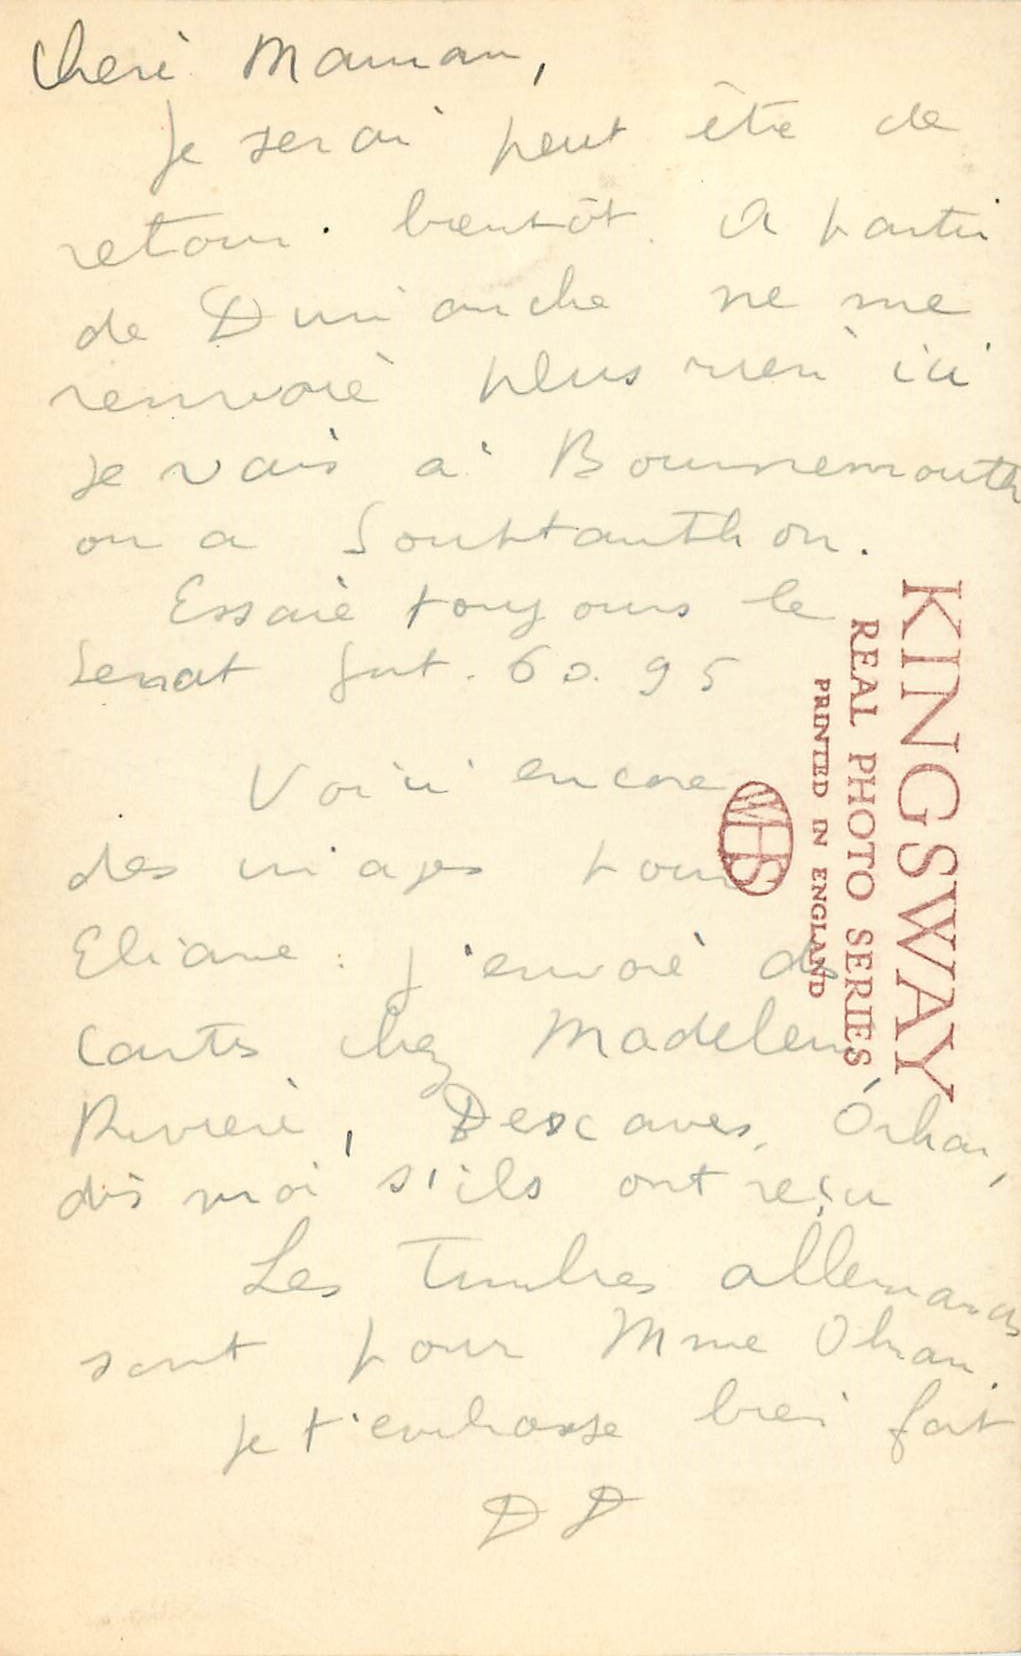 Cheri Maman,
Je serai peut être de
retour. bientôt. A partir
de Dimanche ne me
renvoie plus rien ici
je vais a Bournemouth
ou a Southampthon.
Essaie toujours le
Senat fut. 60. 95
Voici encore
des images pour
Eliane. j'envoie des
cartes chez Madeleine
Riviere, Descaves, Orhan,
dis moi s'ils ont reçu
Les Timbres allemands
sont pour Mme Ohran.
je t'embrasse bien fort
D D
KINGSWAY
REAL PHOTO SERIES
PRINTED IN ENGLAND
WHS